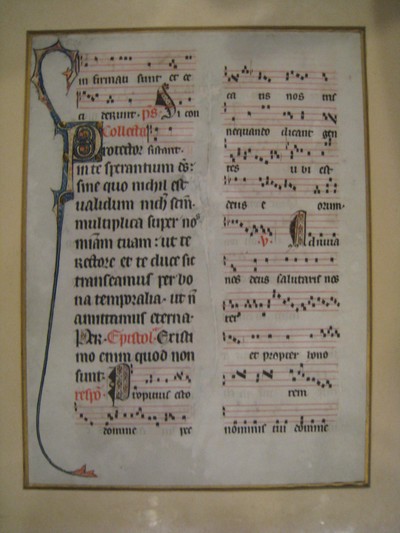 infirmati sunt et ce
ciderunt. ps Si con
Collecta
Protector sistant.
in te sperantium ds̄
sine quo nichil est
ualidum nich̄ sctm̄
multiplica super nos
miam tuam: ut te
rectore et te duce sic
transeamus per bo
na temporalia. ut n̄
amittamus eterna.
Per. Epistol' Existi
mo enim quod non
sunt:
resp̄ Propitius esto
domine pec
ca tis nos tris
nequando dicant gen
tes u bi est
deus e orum.
v. Adiuua
nos deus salutaris nos
ter
et propter hono
rem
nominis tui domine